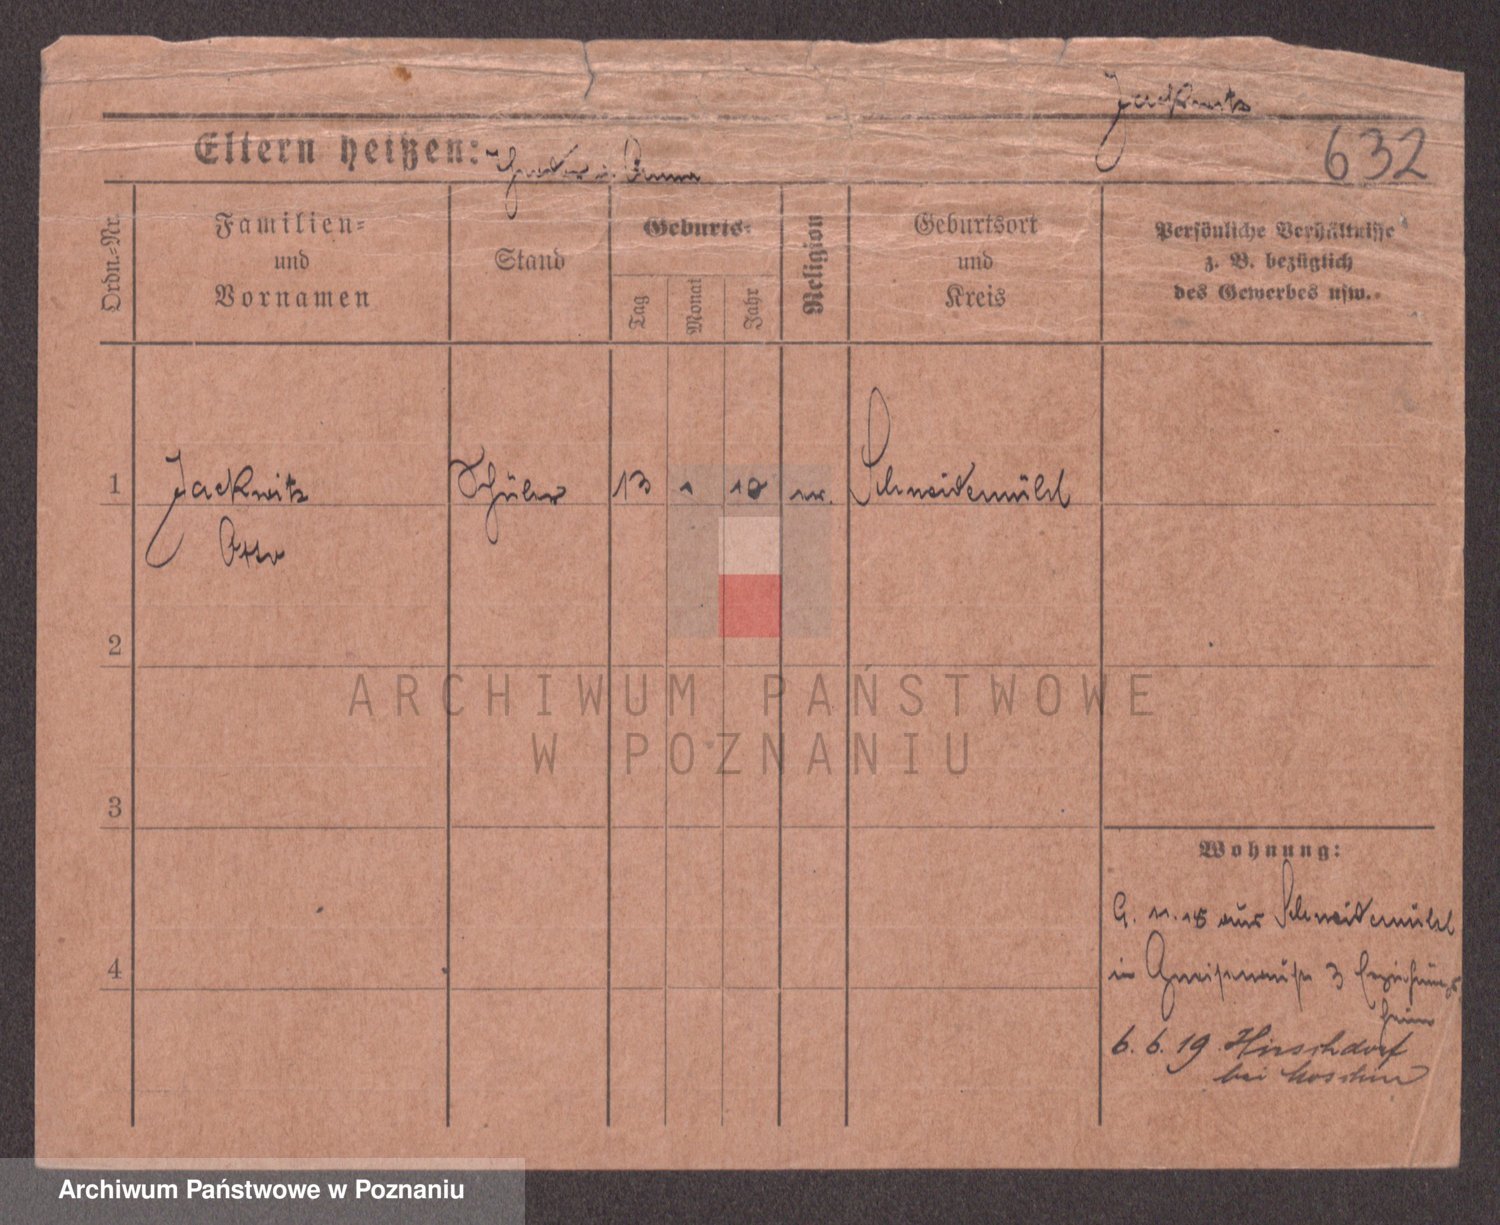 Jackwitz
632
Eltern heißen: u. Anna
Ordn.-Nr.
Familien-
und
Vornamen
Stand
Geburts-
Tag
Monat
Jahr
Religion
Geburtsort
und
Kreis
Persönliche Verhältnisse
z. B. bezüglich
des Gewerbes usw.
1
Jackwitz
Otto
Schüler
13
Schneidemühl
2
ARCHIWUM PAŃSTWOWE
W POZNANIU
3
4
Wohnung:
aus Schneidemühl
in 3 Erziehungs
heim
6. 6. 19 Hirschdorf
bei Moschin
Archiwum Państwowe w Poznaniu